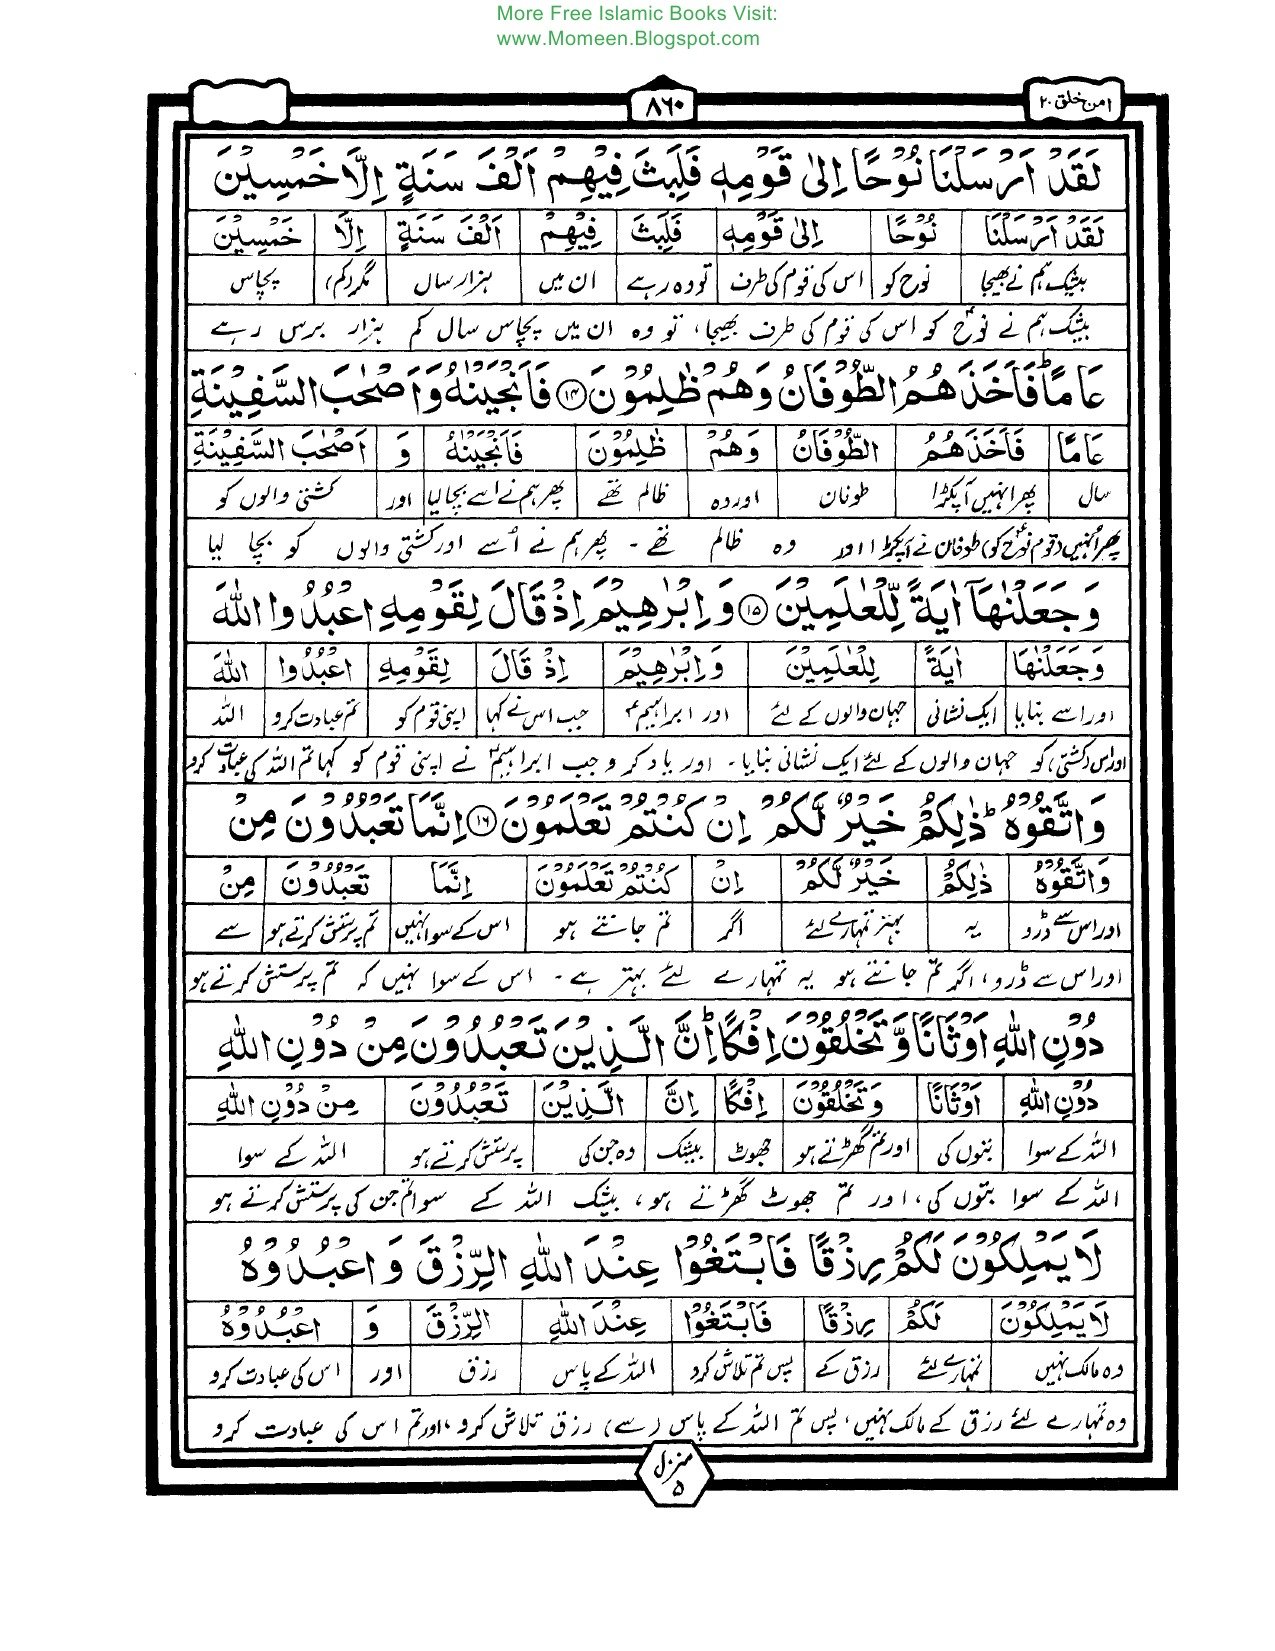 More Free Islamic Books Visit:
www.Momeen.Blogspot.com
امن خلق ۲۰
۸۶۰
لَقَدْ اَرْسَلْنَا نُوْحًا اِلٰى قَوْمِهٖ فَلَبِثَ فِيْهِمْ اَلْفَ سَنَةٍ اِلَّا خَمْسِيْنَ
لَقَدْ اَرْسَلْنَا نُوْحًا اِلٰى قَوْمِهٖ فَلَبِثَ فِيْهِمْ اَلْفَ سَنَةٍ اِلَّا خَمْسِيْنَ
بیشک ہم نے بھیجا نوح کو اس کی قوم کی طرف تو وہ رہے ان میں ہزار سال مگر (کم) پچاس
بیشک ہم نے نوحؑ کو اس کی قوم کی طرف بھیجا، تو وہ ان میں پچاس سال کم ہزار برس رہے
عَامًا ؕ فَاَخَذَهُمُ الطُّوْفَانُ وَهُمْ ظٰلِمُوْنَ ۱۴ فَاَنْجَيْنٰهُ وَاَصْحٰبَ السَّفِيْنَةِ
عَامًا فَاَخَذَهُمُ الطُّوْفَانُ وَهُمْ ظٰلِمُوْنَ فَاَنْجَيْنٰهُ وَ اَصْحٰبَ السَّفِيْنَةِ
سال پھر انہیں آپکڑا طوفان اور وہ ظالم تھے پھر ہم نے اسے بچالیا اور کشتی والوں کو
پھر اُنہیں (قوم نوحؑ کو) طوفان نے آپکڑا اور وہ ظالم تھے ۔ پھر ہم نے اُسے اور کشتی والوں کو بچا لیا
وَجَعَلْنٰهَاۤ اٰيَةً لِّلْعٰلَمِيْنَ ۱۵ وَاِبْرٰهِيْمَ اِذْ قَالَ لِقَوْمِهِ اعْبُدُوا اللّٰهَ
وَجَعَلْنٰهَا اٰيَةً لِّلْعٰلَمِيْنَ وَاِبْرٰهِيْمَ اِذْ قَالَ لِقَوْمِهِ اعْبُدُوا اللّٰهَ
اور اسے بنایا ایک نشانی جہان والوں کے لئے اور ابراہیمؑ جب اس نے کہا اپنی قوم کو تم عبادت کرو اللہ
اور اس (کشتی) کو جہان والوں کے لئے ایک نشانی بنایا ۔ اور یاد کرو جب ابراہیمؑ نے اپنی قوم کو کہا تم اللہ کی عبادت کرو
وَاتَّقُوْهُ ؕ ذٰلِكُمْ خَيْرٌ لَّكُمْ اِنْ كُنْتُمْ تَعْلَمُوْنَ ۱۶ اِنَّمَا تَعْبُدُوْنَ مِنْ
وَاتَّقُوْهُ ذٰلِكُمْ خَيْرٌ لَّكُمْ اِنْ كُنْتُمْ تَعْلَمُوْنَ اِنَّمَا تَعْبُدُوْنَ مِنْ
اور اس سے ڈرو یہ بہتر تمہارے لئے اگر تم جانتے ہو اس کے سوا نہیں تم پرستش کرتے ہو سے
اور اس سے ڈرو، اگر تم جانتے ہو یہ تمہارے لئے بہتر ہے ۔ اس کے سوا نہیں کہ تم پرستش کرتے ہو
دُوْنِ اللّٰهِ اَوْثَانًا وَّتَخْلُقُوْنَ اِفْكًا ؕ اِنَّ الَّذِيْنَ تَعْبُدُوْنَ مِنْ دُوْنِ اللّٰهِ
دُوْنِ اللّٰهِ اَوْثَانًا وَتَخْلُقُوْنَ اِفْكًا اِنَّ الَّذِيْنَ تَعْبُدُوْنَ مِنْ دُوْنِ اللّٰهِ
اللہ کے سوا بتوں کی اور تم گھڑتے ہو جھوٹ بیشک وہ جن کی پرستش کرتے ہو اللہ کے سوا
اللہ کے سوا بتوں کی، اور تم جھوٹ گھڑتے ہو، بیشک اللہ کے سوا تم جن کی پرستش کرتے ہو
لَا يَمْلِكُوْنَ لَكُمْ رِزْقًا فَابْتَغُوْا عِنْدَ اللّٰهِ الرِّزْقَ وَاعْبُدُوْهُ
لَا يَمْلِكُوْنَ لَكُمْ رِزْقًا فَابْتَغُوْا عِنْدَ اللّٰهِ الرِّزْقَ وَ اعْبُدُوْهُ
وہ مالک نہیں تمہارے لئے رزق کے پس تم تلاش کرو اللہ کے پاس رزق اور اس کی عبادت کرو
وہ تمہارے لئے رزق کے مالک نہیں، پس تم اللہ کے پاس (سے) رزق تلاش کرو، اور تم اس کی عبادت کرو
منزل
۵